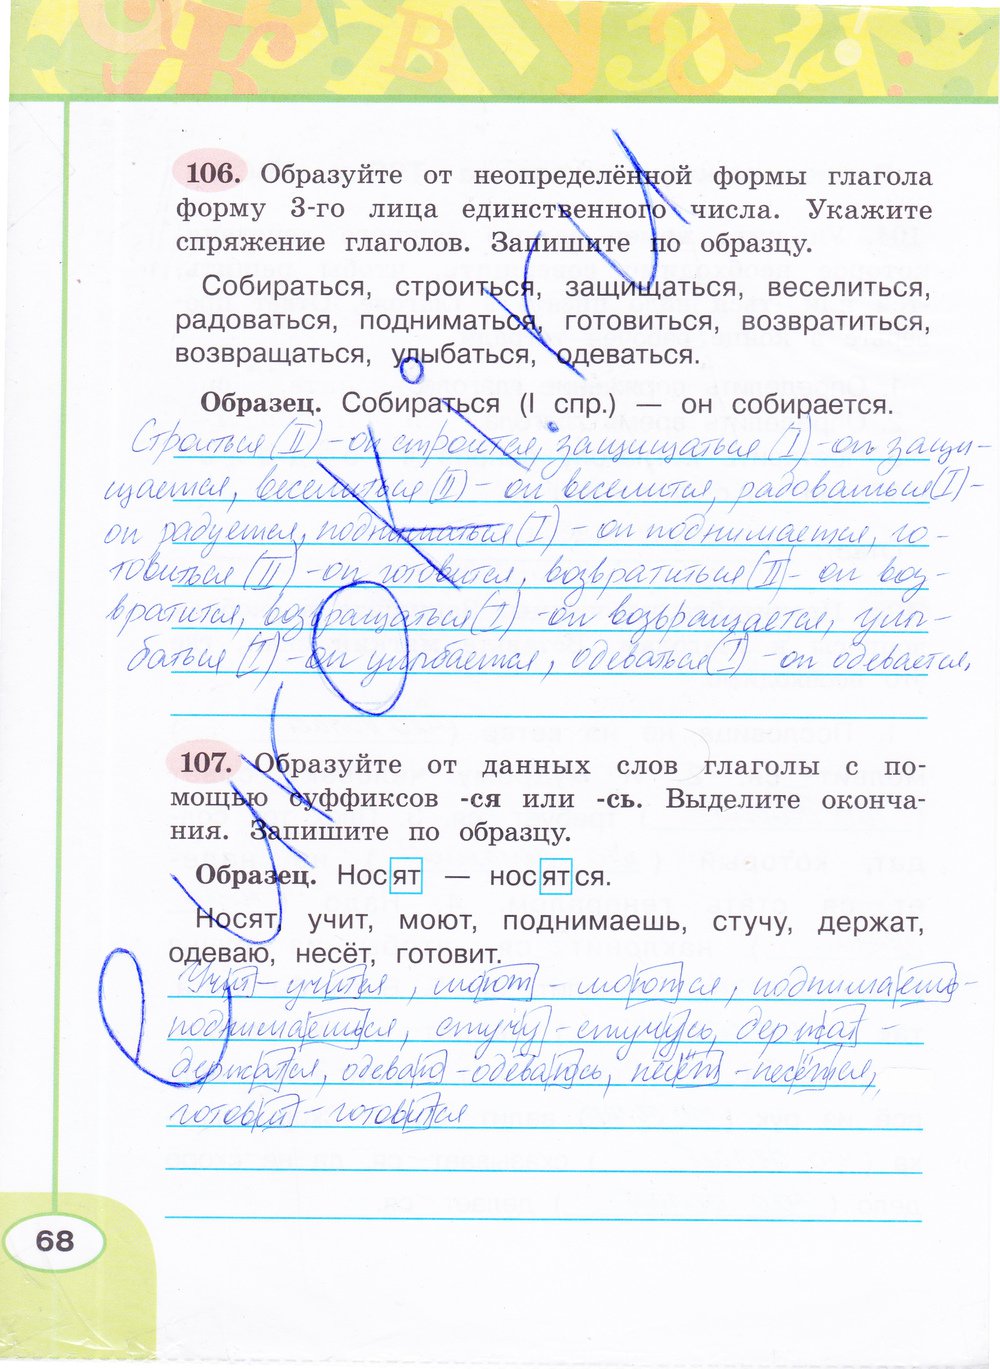 106. Образуйте от неопределённой формы глагола
форму 3-го лица единственного числа. Укажите
спряжение глаголов. Запишите по образцу.
Собираться, строиться, защищаться, веселиться,
радоваться, подниматься, готовиться, возвратиться,
возвращаться, улыбаться, одеваться.
Образец. Собираться (I спр.) — он собирается.
Строиться (II) – он строится, защищаться (I) – он защи-
щается, веселиться (II) – он веселится, радоваться (I) –
он радуется, подниматься (I) – он поднимается, го-
товиться (II) – он готовится, возвратиться (II) – он воз-
вратится, возвращаться (I) – он возвращается, улы-
баться (I) – он улыбается, одеваться (I) – он одевается.
107. Образуйте от данных слов глаголы с по-
мощью суффиксов -ся или -сь. Выделите оконча-
ния. Запишите по образцу.
Образец. Носят — носятся.
Носят, учит, моют, поднимаешь, стучу, держат,
одеваю, несёт, готовит.
Учит – учится, моют – моются, поднимаешь –
поднимаешься, стучу – стучусь, держат –
держатся, одеваю – одеваюсь, несёт – несётся,
готовит – готовится
68
e urokiru